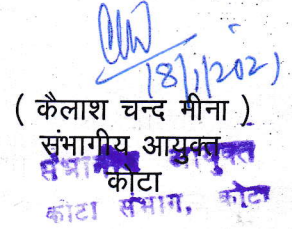 18/1/2021
( कैलाश चन्द मीना )
संभागीय आयुक्त
कोटा
संभागीय आयुक्त
कोटा संभाग, कोटा